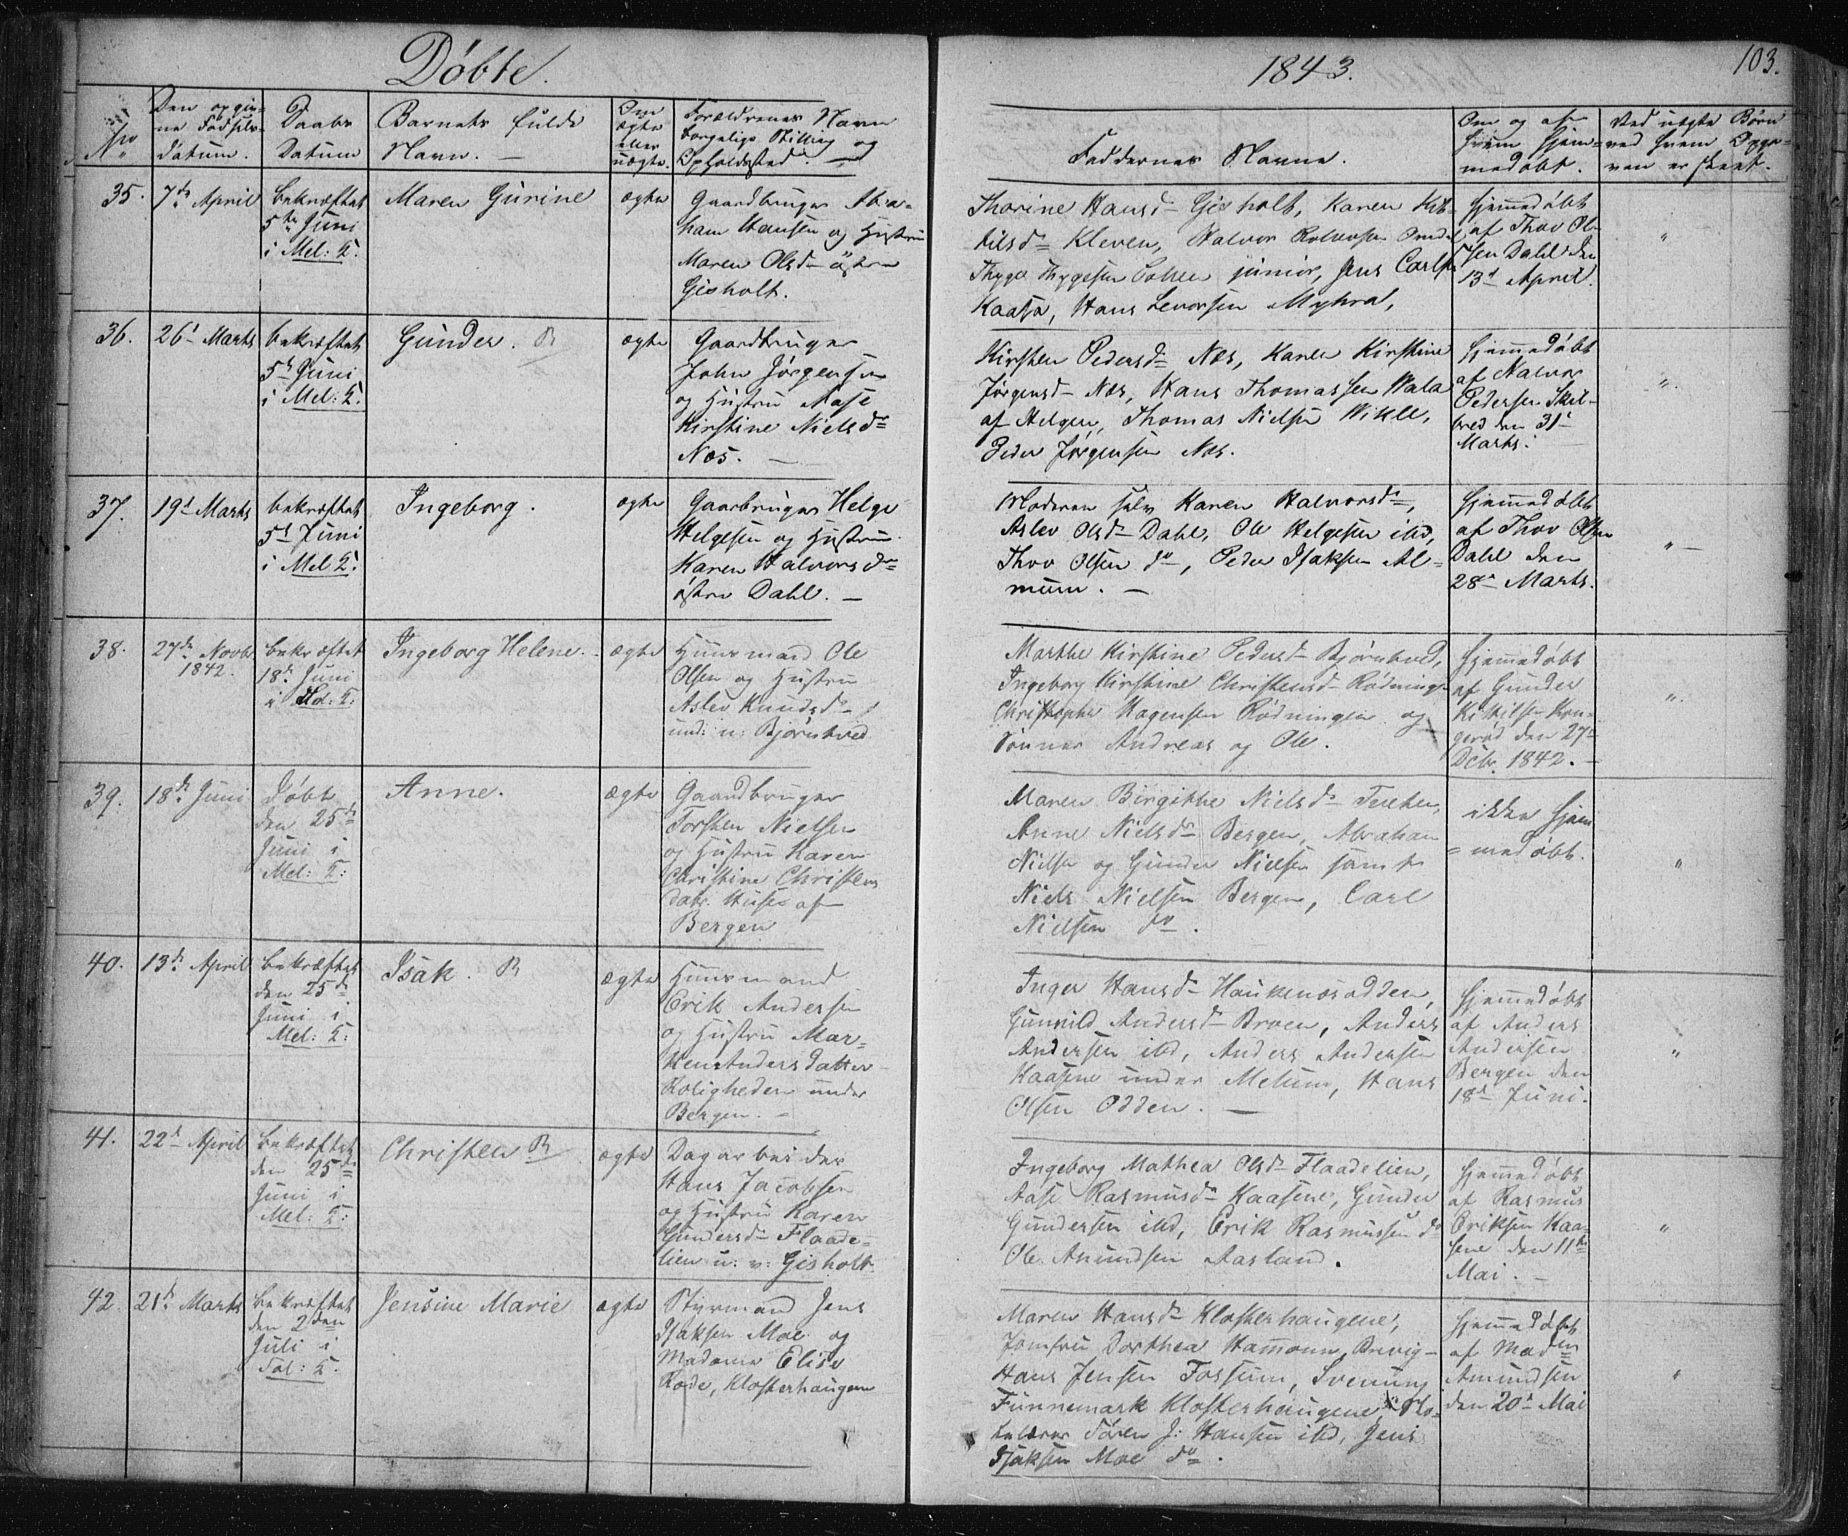 Döbte.
1843.
103.
No
Den opgiv-
ne Födsels-
datum.
Daabs
Datum
Barnets fulde
Navn. —
Om
ægte
eller
uægte.
Forældrenes Navn
borgelige Stilling og
Opholdssted. —
Faddernes Navne.
Om og af
hvem hjem-
medöbt.
Ved uægte Börn
ved hvem Opga-
ven er skeet.
35.
7de April
bekræftet
5te Juni
i Mel: K.
Maren Gurine
ægte
Gaardbruger Abra-
ham Hansen og Hustru
Maren Olsd östre
Gisholt.
Thorine Hansd Gisholt, Karen Kit-
tilsd Kleven, Halvor Rolvorsen
Thyge Thygesen junior, Jens Carlsen
Kaasa, Hans Levorsen Myhra,
hjemmedöbt
af Thov Ol-
sen Dahl den
13d April.
"
36.
26d Marts
bekræftet
5te Juni
i Mel: K.
Gunder. R
ægte
Gaardbruger
John Jörgensen
og Hustru Aase
Kirstine Nielsdr
Næs. —
Kirsten Pedersd Næs, Karen Kirstine
Jörgensd Næs, Hans Thomassen Vala
af Helgen, Thomas Nielsen Vible,
Peder Jörgensen Næs.
hjemmedöbt
af Halvor
Pedersen Skil-
bred den 31d
Marts.
"
37.
19d Marts
bekræftet
5d Juni
i Mel K:
Ingeborg.
ægte
Gaarbruger Helge
Helgesen og Hustru
Karen Halvorsdr
östre Dahl. —
Moderen selv Karen Halvorsdr,
Aslev Olsd Dahl, Ole Helgesen ibd,
Thov Olsen do, Peder Isaksen Al-
mum. —
hjemmedöbt
af Thov Olsen
Dahl den
28d Marts.
" —
38.
27de Novbr
1842.
bekræftet
18de Juni
i Sol: K:
Ingeborg Helene.
ægte
Huusmand Ole
Olsen og Hustru
Aslev Knudsd
und: n: Björntved
Marthe Kirstine Pedersd Björntved,
Ingeborg Kirstine Christensd Rödning-
Christopher Hagensen Rödningen og
Sönner Andreas og Ole.
hjemmedöbt
af Gunder
Kittilsen Kon-
geröd den 27de
Dcbr. 1842. —
"
39.
18de Juni
Döbt
den 25de
Juni i
Mel: K:
Anne.
ægte
Gaardbruger
Torsten Nielsen
og Hustru Karen
Christine Christens
datr. Huset af
Bergen
Maren Birgitte Nielsdr
Anne Nielsdr Bergen, Abraham
Nielsen og Gunder Nielsen samt
Niels Nielsen Bergen, Carl
Nielsen do.
ikke hjem
= medöbt.
"
40.
13de April
bekræftet
den 25de
Juni i
Mel: K:
Isak. R
ægte
Huusmand
Erik Andersen
og Hustru Mar-
then Andersdatter
Roligheden under
Bergen. —
Inger Hansd Haukenæsodden,
Gunnild Andersd Broen, Anders
Andersen ibd, Anders Andersen
Kaasene under Melum, Hans
Olsen Odden. —
hjemmedöbt
af Anders
Andersen
Bergen den
18d Juni.
"
41.
22d April
bekræftet
den 25de
Juni i
Mel: K:
Christen R
ægte
Dagarbeider
Hans Jacobsen
og Hustru Karen
Gundersd Flaade-
lien u: v: Gisholt.
Ingeborg Mathea Olsd Flaadelien,
Aase Rasmusd Kaasene, Gunder
Gundersen ibd, Erik Rasmussen do
Ole Amundsen Aasland.
hjemmedöbt
af Rasmus
Eriksen Kaa-
sene den 11te
Mai. —
"
42.
21de Marts
bekræftet
den 2den
Juli i
Sol: K.
Jensine Marie
ægte
Styrmand Jens
Isaksen Moe og
Madame Elise
Rode, Klosterhaugene
Maren Hansd Klosterhaugene,
Jomfru Dorthea Hamoun Brevig-
Hans Jensen Fossum, Svenung
Finnemark Klosterhaugene, Sko-
lelærer Sören J: Hansen ibd, Jens
Isaksen Moe do.
hjemmedöbt
af Madm
Amundsen
den 20d Mai
"